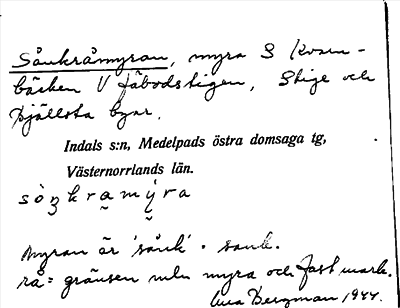 Sånkråmyran, myra S Kvarn-
bäcken V fäbodstigen, Stige och
Bjällsta byar.
Indals s:n, Medelpads östra domsaga tg,
Västernorrlands län.
Myran är 'sånk' = sank.
rå = gränsen mellan myra och fast mark.
Bergman 1944.